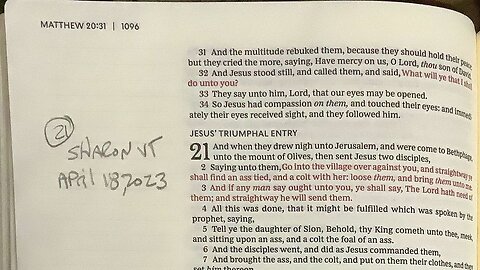 MATTHEW 20:31 | 1096
31 And the multitude rebuked them, because they should hold their peace:
but they cried the more, saying, Have mercy on us, O Lord, thou son of David.
32 And Jesus stood still, and called them, and said, What will ye that I
do unto you?
33 They say unto him, Lord, that our eyes may be opened.
34 So Jesus had compassion on them, and touched their eyes: and immedi
ately their eyes received sight, and they followed him.
JESUS' TRIUMPHAL ENTRY
21 And when they drew nigh unto Jerusalem, and were come to Bethphage,
unto the mount of Olives, then sent Jesus two disciples,
2 Saying unto them, Go into the village over against you, and straightway ye
shall find an ass tied, and a colt with her: loose them, and bring them unto me.
3 And if any man say ought unto you, ye shall say, The Lord hath need of
them; and straightway he will send them.
4 All this was done, that it might be fulfilled which was spoken by the
prophet, saying,
5 Tell ye the daughter of Sion, Behold, thy King cometh unto thee, meek,
and sitting upon an ass, and a colt the foal of an ass.
6 And the disciples went, and did as Jesus commanded them,
7 And brought the ass, and the colt, and put on them their clothes, and they
set him thereon.
21
SHARON VT
April 18, 2023